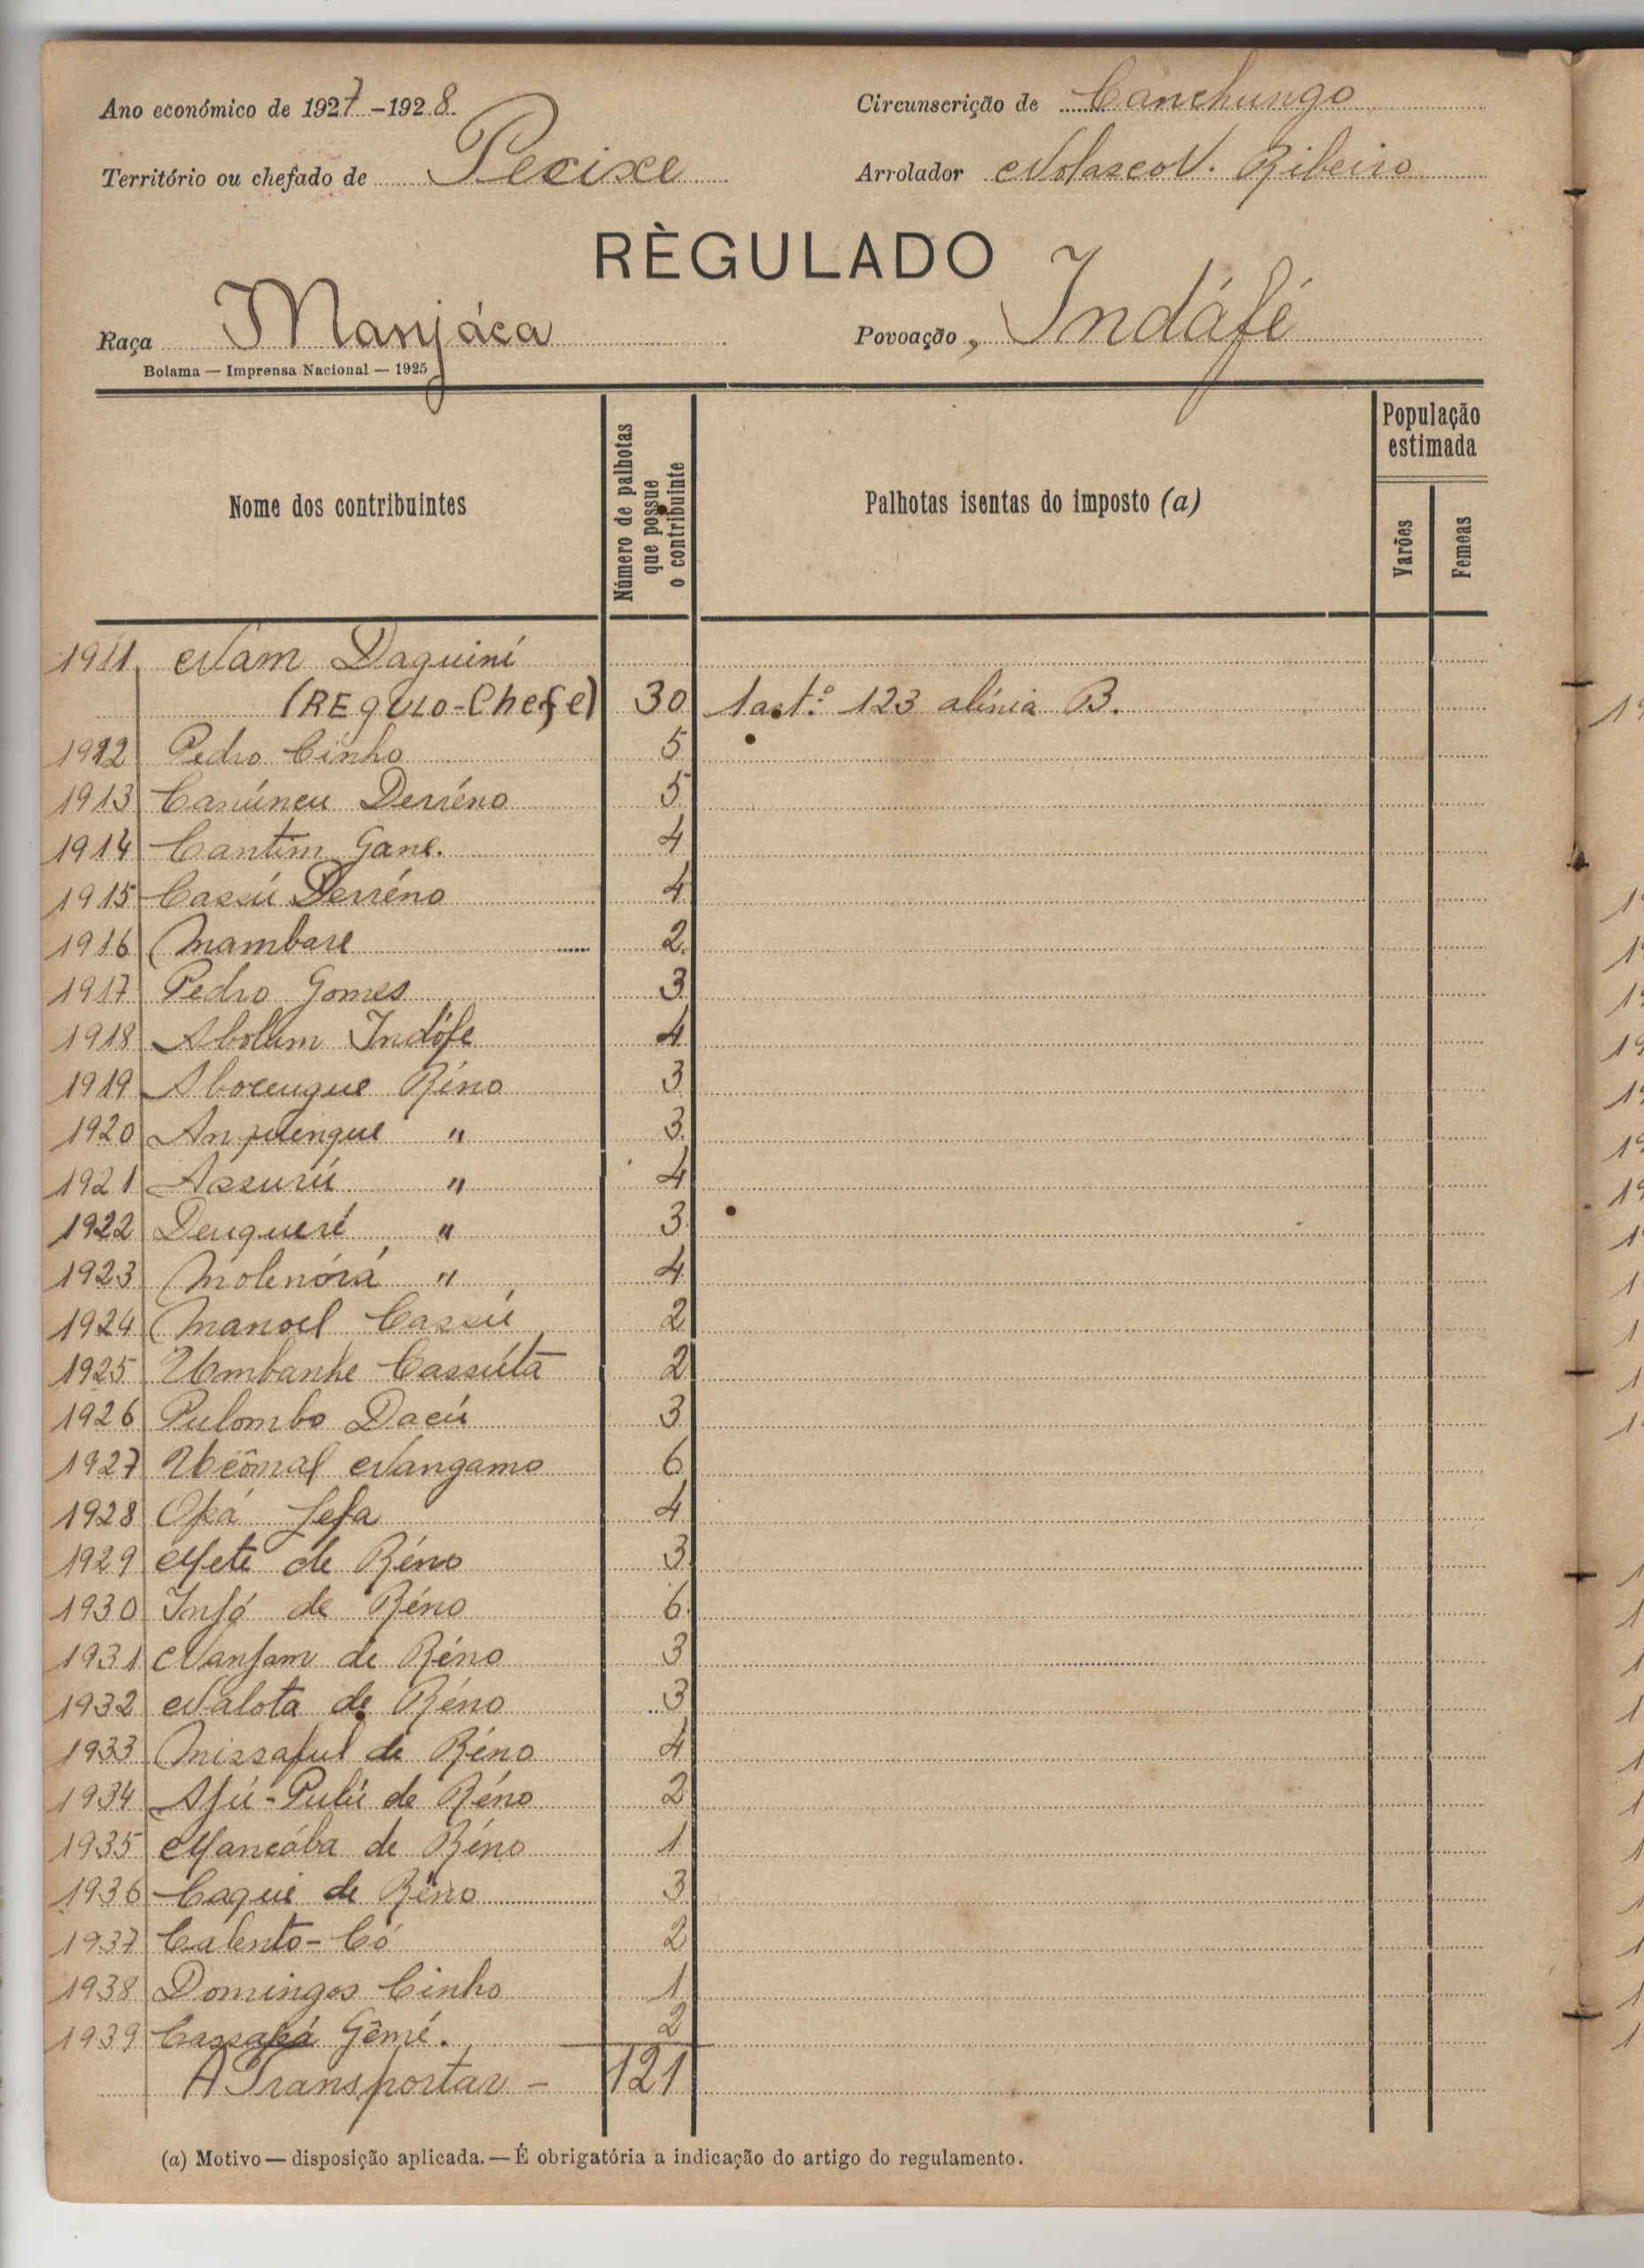 Ano económico de 1927-1928. Circunscrição de Canchungo
Território ou chefado de Pecixe Arrolador Nolasco N. Ribeiro
RÈGULADO
Raça Manjáca Povoação, Indáfé
Bolama — Imprensa Nacional — 1925
Nome dos contribuintes
Número de palhotas que possue o contribuinte
Palhotas isentas do imposto (a)
População estimada
Varões
Femeas
1911 Nam Daguiní
(REgULO-Chefe) 30 1 art.º 123 alínia B.
1912 Pedro Cinho 5
1913 Derréno 5
1914 Cantim Gane. 4
1915 Cassú Derréno 4
1916 Mambare 2
1917 Pedro Gomes 3
1918 Abolum Indófe 4
1919 Réno 3
1920 " 3
1921 Assurú " 4
1922 Deuguerí " 3
1923 Molenórá " 4
1924 Manoel Cassú 2
1925 Umbanhe Cassúta 2
1926 Pulombo Dacú 3
1927 Nangamo 6
1928 4
1929 de Réno 3
1930 de Réno 6
1931 Nanfam de Réno 3
1932 Nalota de Réno 3
1933 Missaful de Réno 4
1934 de Réno 2
1935 Mancóba de Réno 1
1936 Caqui de Réno 3
1937 Calento-Có 2
1938 Domingos Cinho 1
1939 Gêmé. 2
A Transportar - 121
(a) Motivo — disposição aplicada. — É obrigatória a indicação do artigo do regulamento.